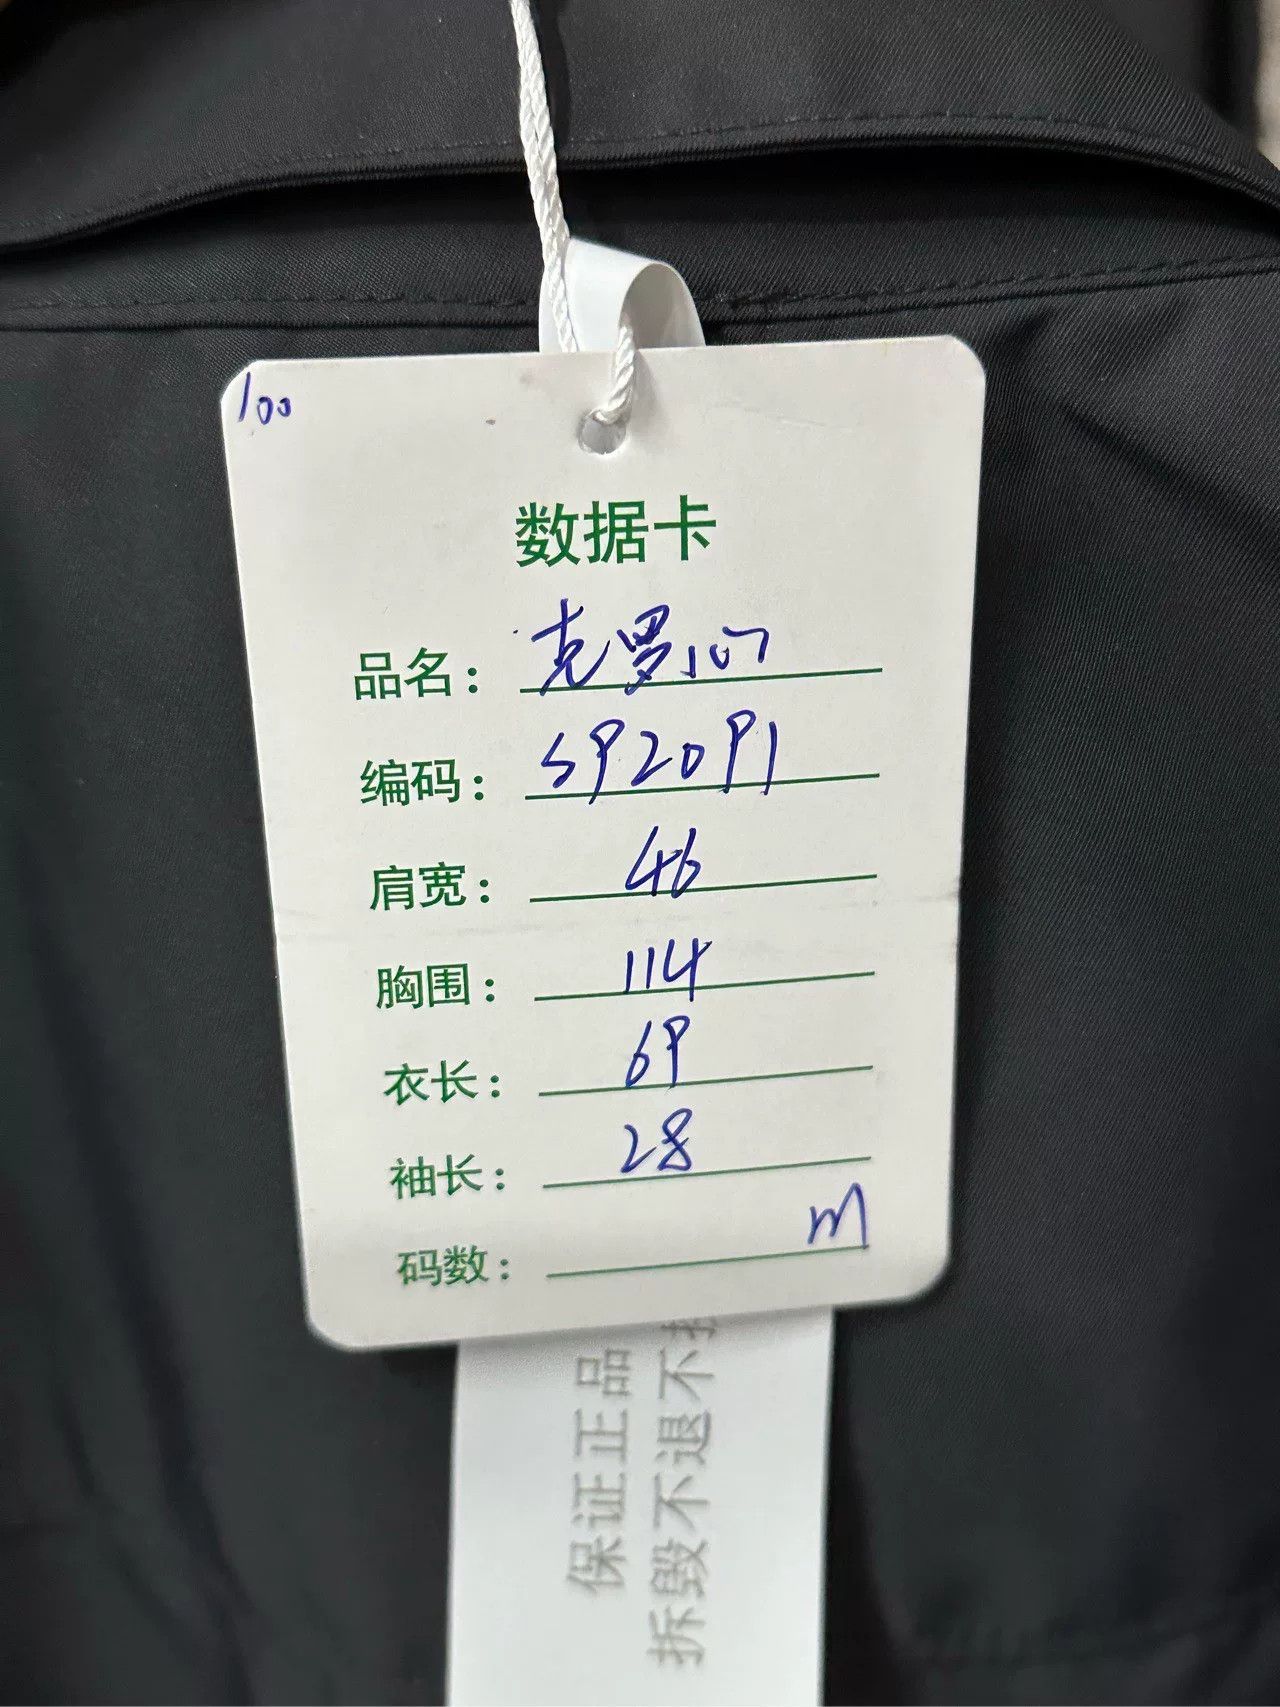 100
数据卡
品名：克罗107
编码：SP20P1
肩宽：46
胸围：114
衣长：69
袖长：28
码数：m
保证正品
拆毁不退不